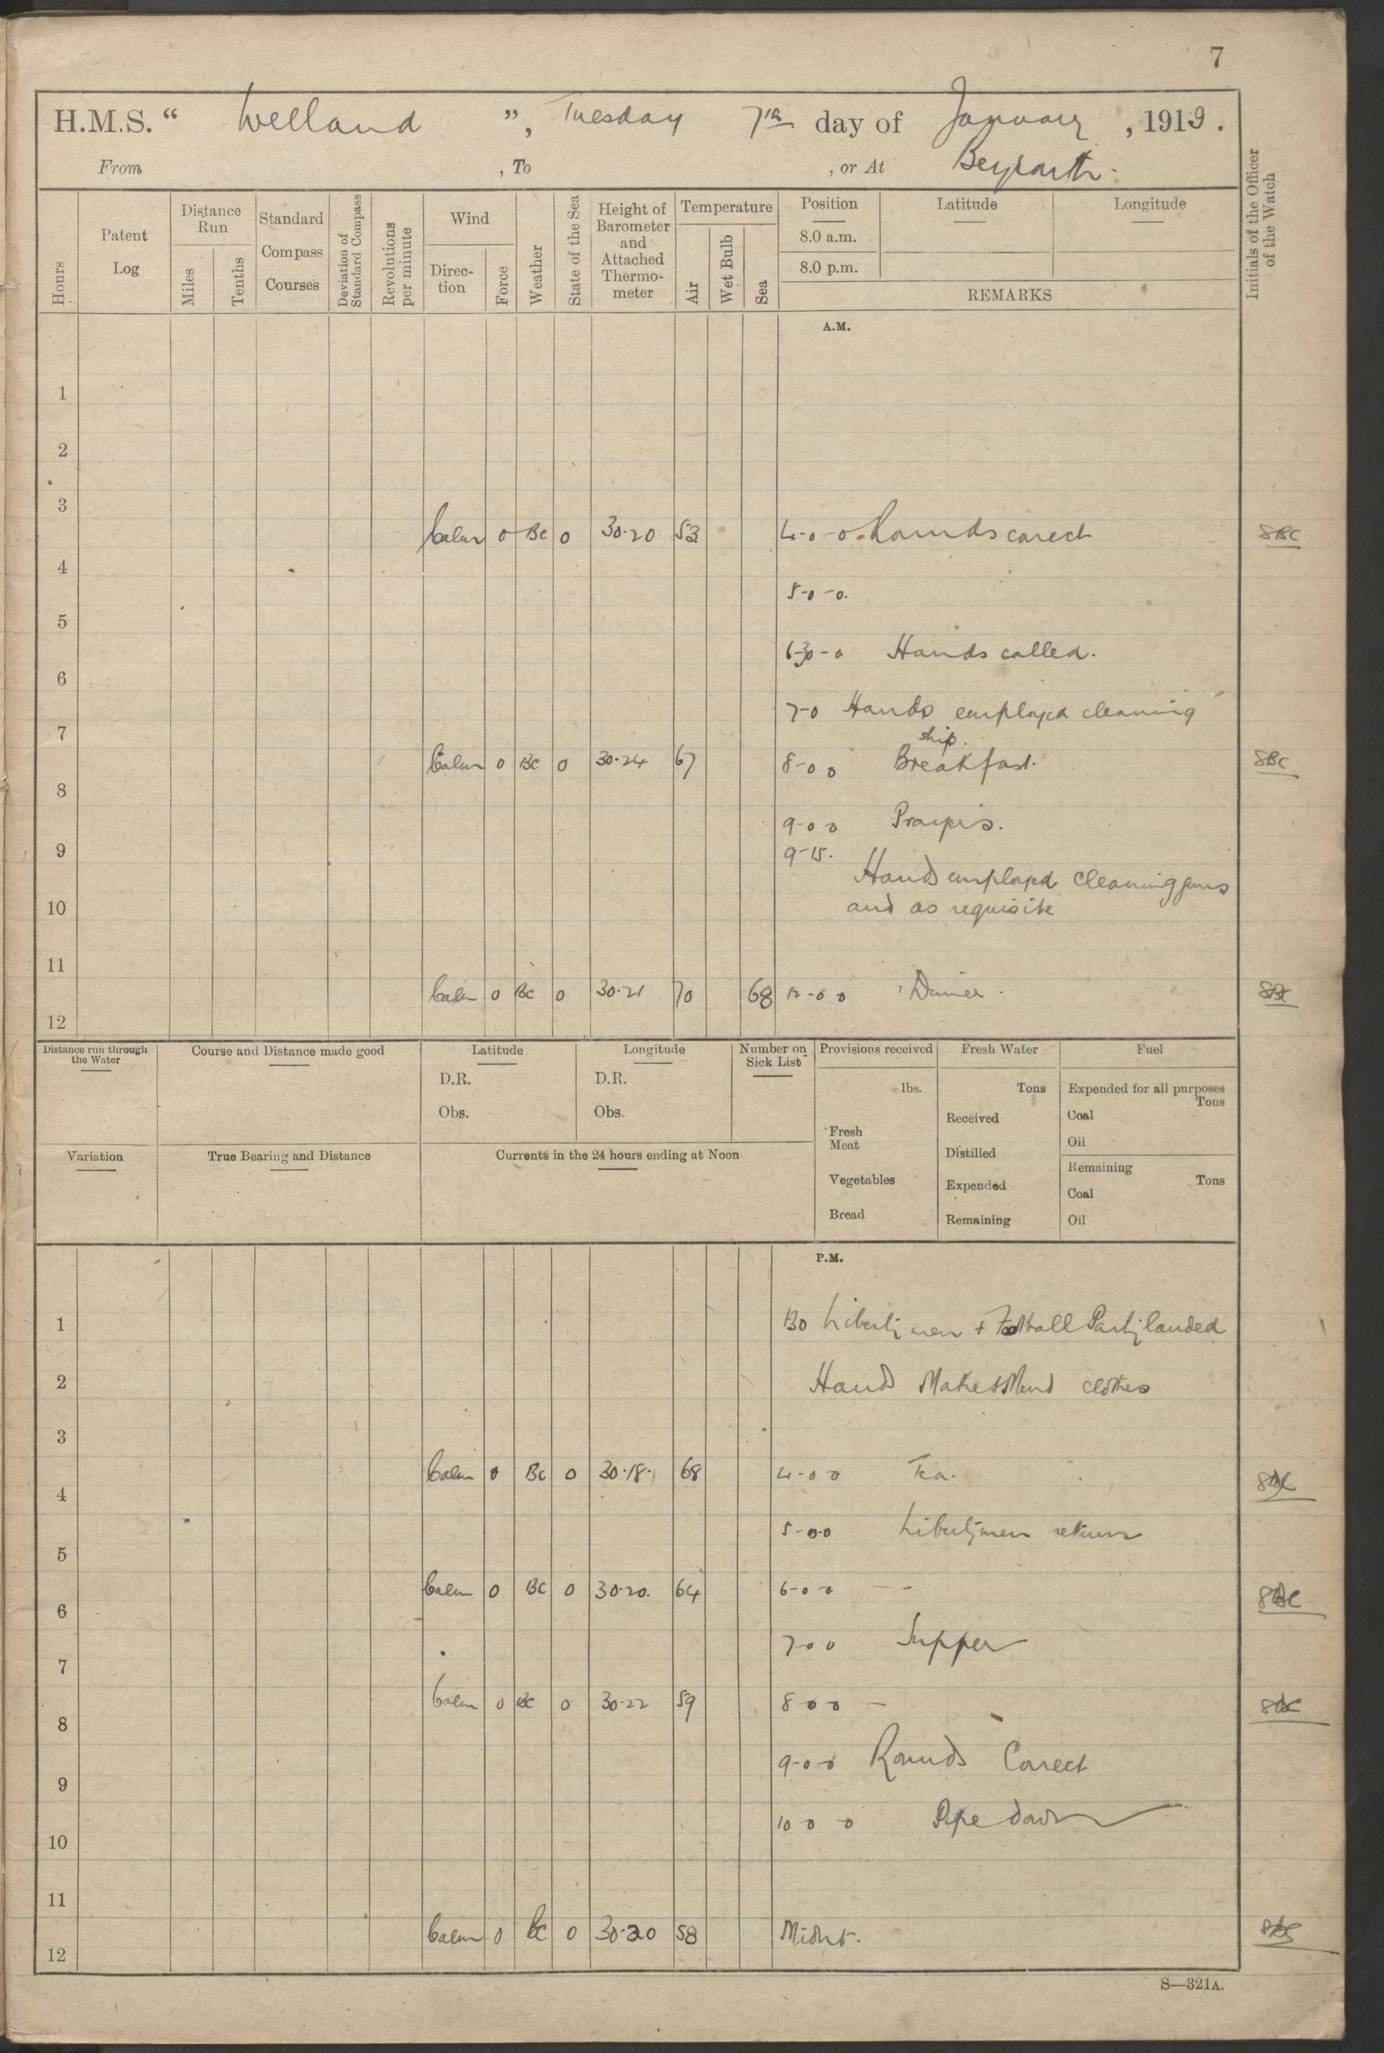 7
H.M.S. “ Welland ”, Tuesday 7th day of January, 1919.
From , To , or At Beyrouth.
Hours
Patent Log
Distance Run
Miles
Tenths
Standard Compass Courses
Deviation of Standard Compass
Revolutions per minute
Wind
Direction
Force
Weather
State of the Sea
Height of Barometer and Attached Thermometer
Temperature
Air
Wet Bulb
Sea
Position
8.0 a.m.
8.0 p.m.
Latitude
Longitude
REMARKS
Initials of the Officer of the Watch
A.M.
1
2
3
Calm 0 BC 0 30.20 53 4-0-0 Rounds corect
4
5-0-0.
5
6-30-0 Hands called.
6
7-0 Hands employed cleaning
ship.
7
Calm 0 BC 0 30.24 67 8-0 0 Breakfast.
8
9-0 0 Prayers.
9-15.
9
Hands employed cleaning guns
and as requisite
10
11
Calm 0 BC 0 30.21 70 68 12-0 0 Dinner.
12
Distance run through the Water
Course and Distance made good
Latitude
D.R.
Obs.
Longitude
D.R.
Obs.
Number on Sick List
Provisions received
lbs.
Fresh Meat
Vegetables
Bread
Fresh Water
Tons
Received
Distilled
Expended
Remaining
Fuel
Expended for all purposes
Tons
Coal
Oil
Remaining
Tons
Coal
Oil
Variation
True Bearing and Distance
Currents in the 24 hours ending at Noon
P.M.
1
130 Liberty men + Football Party landed
2
Hands Make & Mend clothes
3
Calm 0 BC 0 30.18. 68 4-0 0 Tea.
4
5-00 Liberty men return
5
Calm 0 BC 0 30.20. 64 6-0-0 - -
6
7-0 0 Supper
7
Calm 0 BC 0 30.22 59 8 0 0 -
8
9-0 0 Rounds Corect
9
10 0 0 Pipe down
10
11
Calm 0 BC 0 30.20 58 Midnt.
12
S—321A.